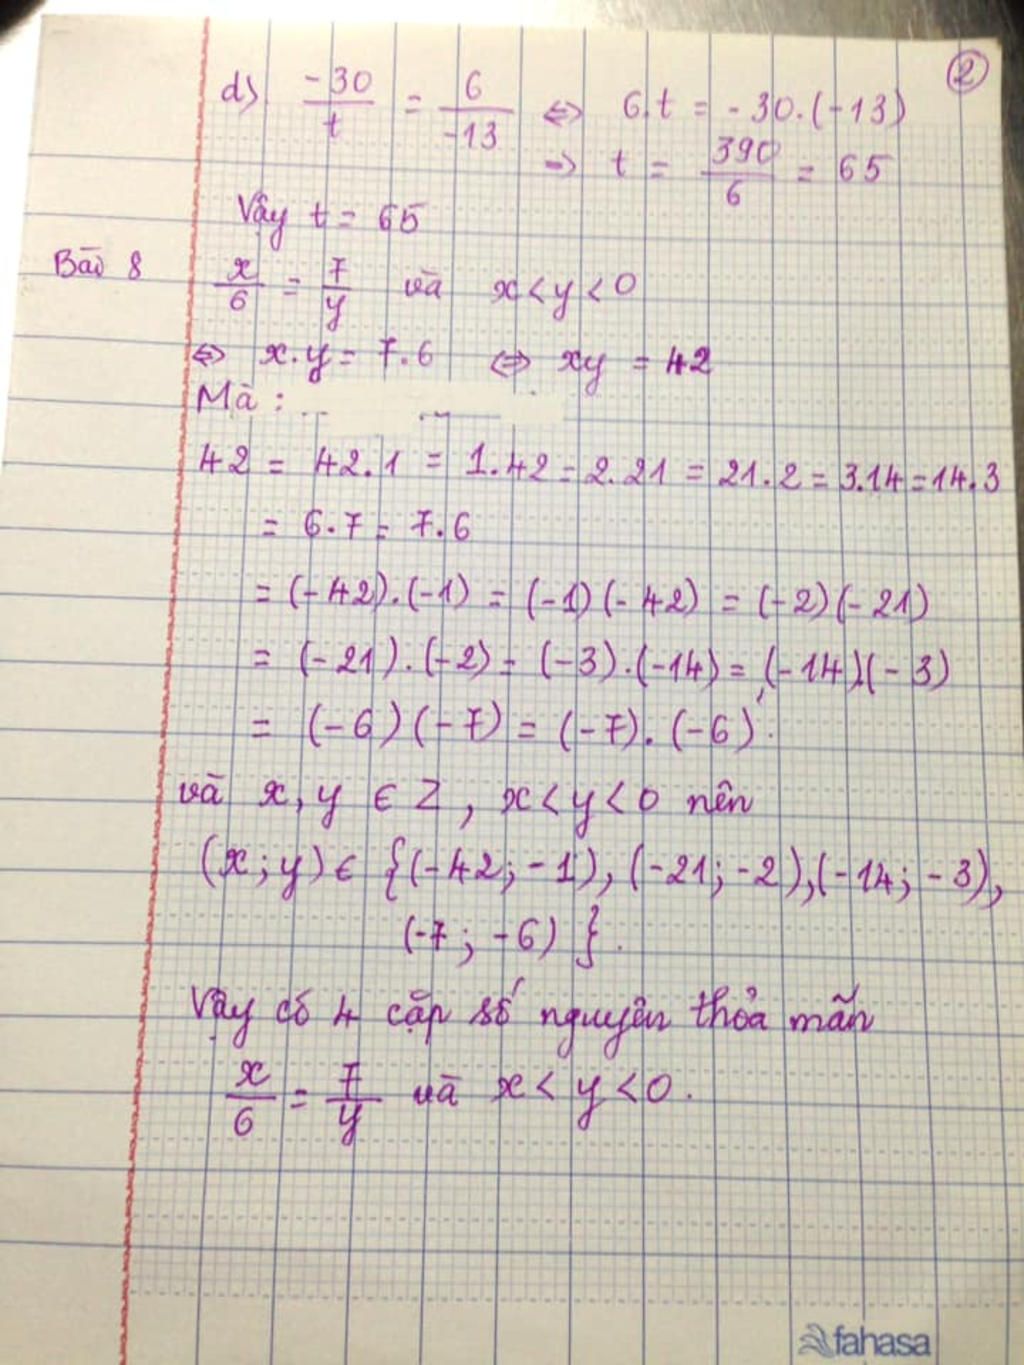 ②
d) -30/t = 6/-13 ⇔ 6.t = -30.(-13)
⇒ t = 390/6 = 65
Vậy t = 65
Bài 8 x/6 = 7/y và x < y < 0
⇔ x.y = 7.6 ⇔ xy = 42
Mà :
42 = 42.1 = 1.42 = 2.21 = 21.2 = 3.14 = 14.3
= 6.7 = 7.6
= (-42).(-1) = (-1)(-42) = (-2)(-21)
= (-21).(-2) = (-3).(-14) = (-14)(-3)
= (-6)(-7) = (-7).(-6).
và x, y ∈ Z, x < y < 0 nên
(x; y) ∈ {(-42; -1), (-21; -2), (-14; -3),
(-7; -6)}.
Vậy có 4 cặp số nguyên thỏa mãn
x/6 = 7/y và x < y < 0.
fahasa